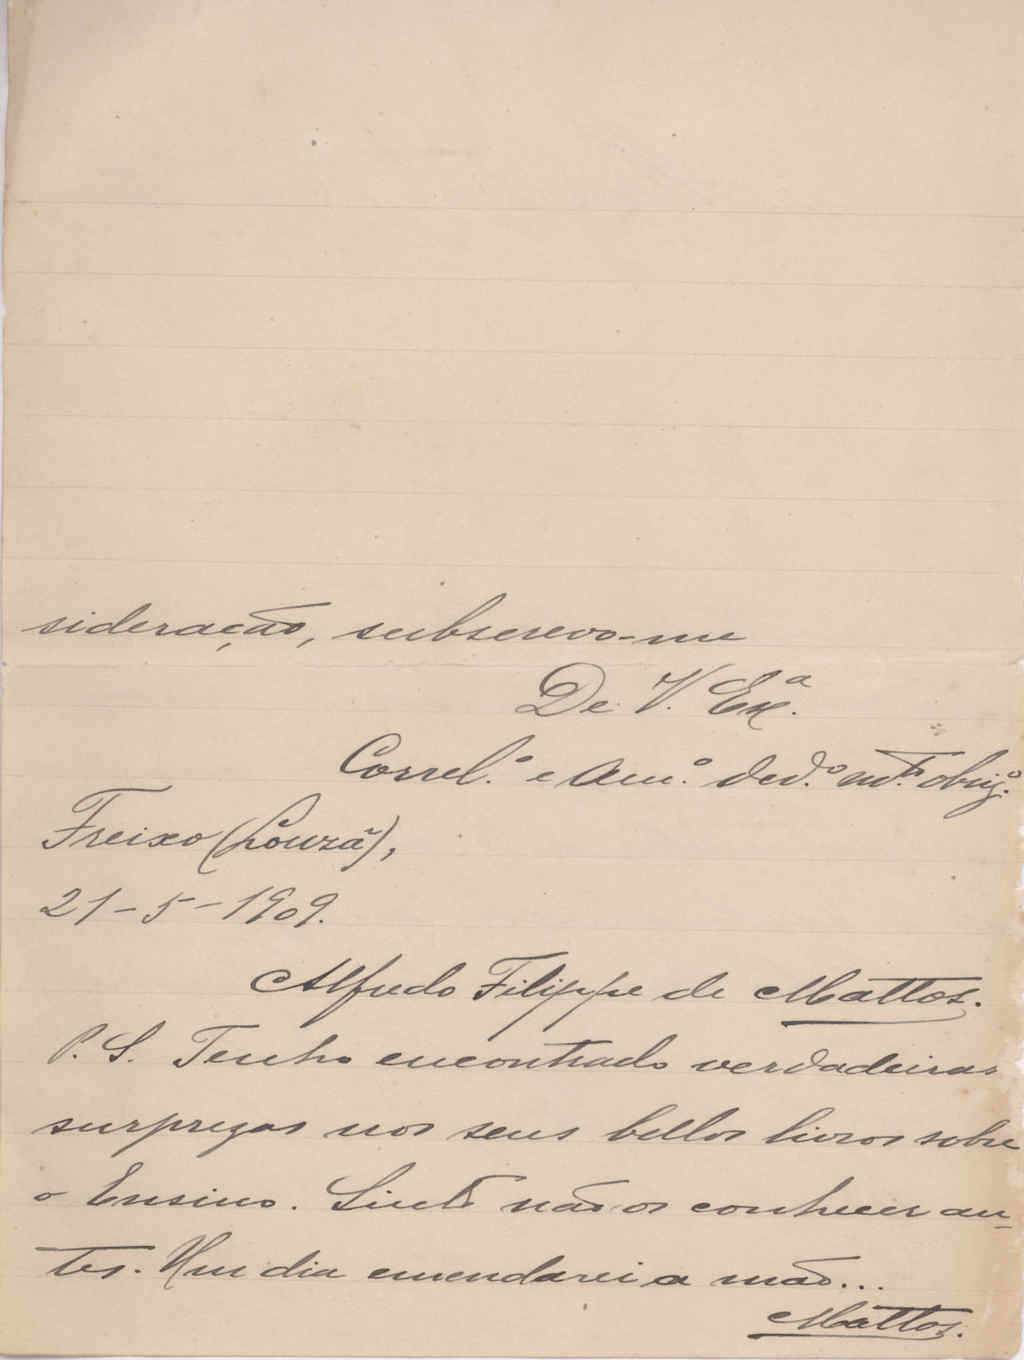 sideração, subscrevo-me
De V. Ex.ª
Correl.º e Am.º ded.º m.to obrig.º
Freixo (Louzã),
21-5-1909.
Alfredo Filippe de Mattos.
P. S. Tenho encontrado verdadeiras
surprezas nos seus bellos livros sobre
o Ensino. Sinto não os conhecer an-
tes. Um dia emendarei a mão...
Mattos.